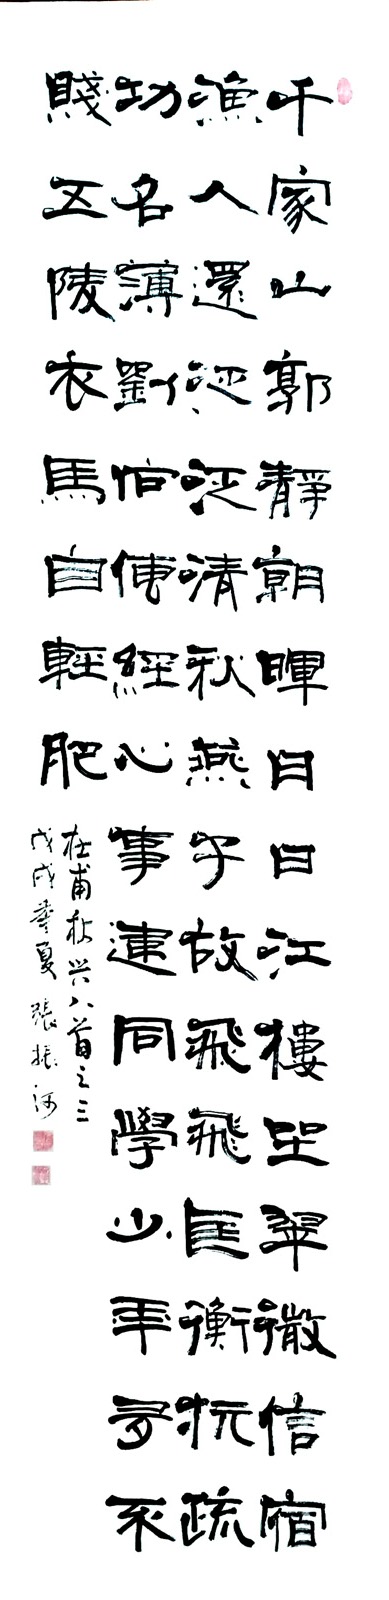 千家山郭靜朝暉日日江樓坐翠微信宿
漁人還泛泛清秋燕子故飛飛匡衡抗疏
功名薄劉向傳經心事違同學少年多不
賤五陵衣馬自輕肥
杜甫秋兴八首之三
戊戌夏張振河